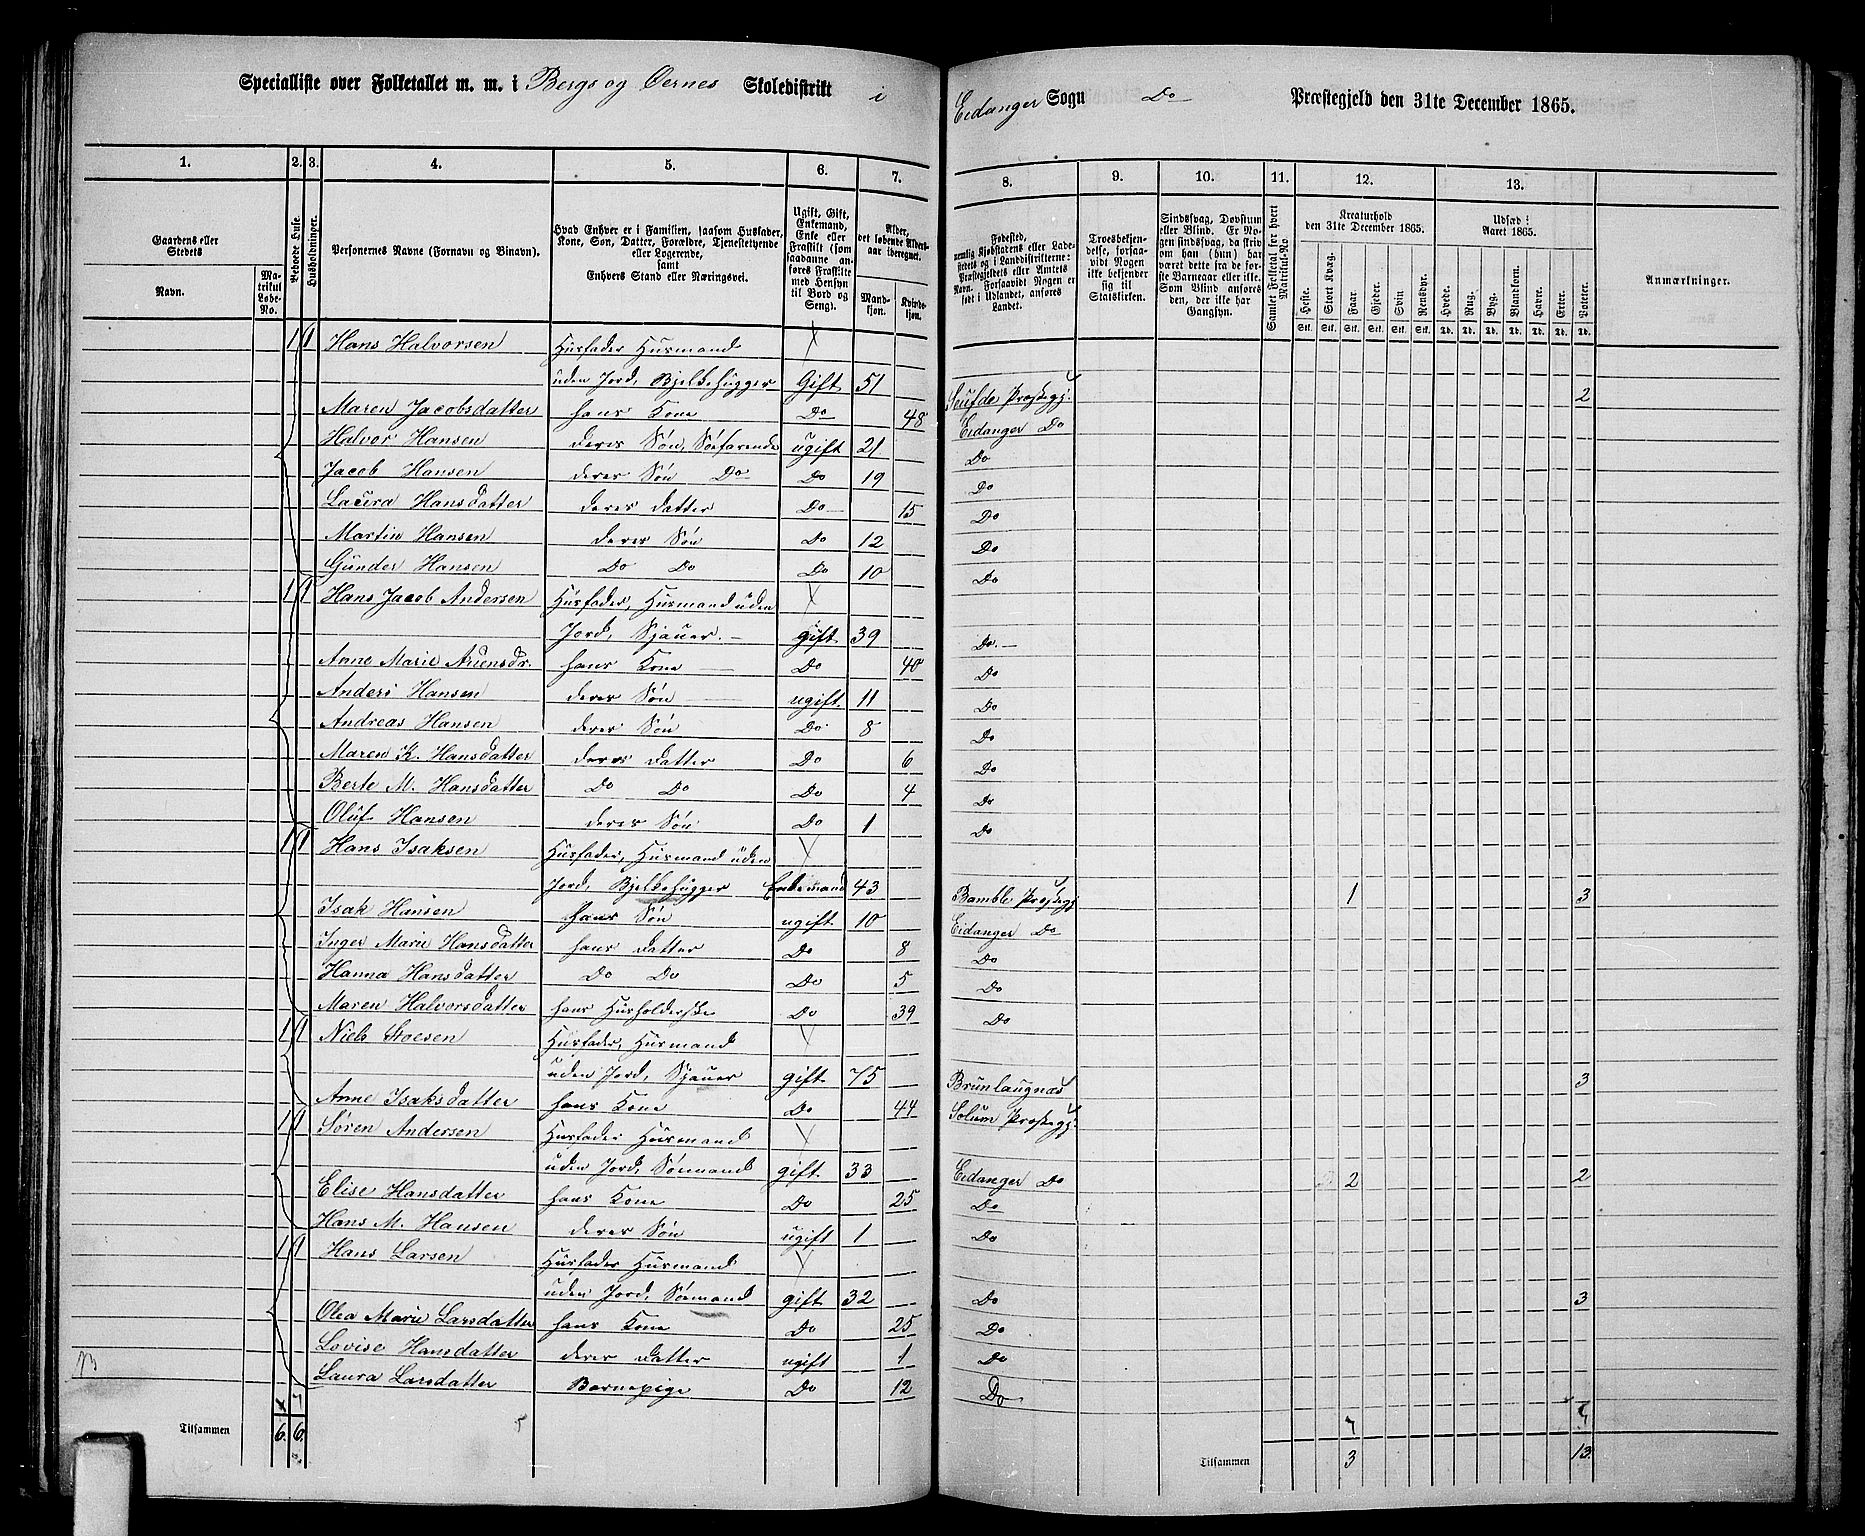 Specialliste over Folketallet m. m. i Bergs og Øernes Skoledistrikt i Eidanger Sogn Do Præstegjeld den 31te December 1865.
1. 2. 3. 4. 5. 6. 7. 8. 9. 10. 11. 12. 13.
Gaardens eller Stedets
Navn.
Matrikul Løbe-No.
Beboede Huse.
Husholdninger.
Personernes Navne (Fornavn og Binavn).
Hvad Enhver er i Familien, saasom Husfader, Kone, Søn, Datter, Forældre, Tjenestetyende eller Logerende, samt Enhvers Stand eller Næringsvei.
Ugift, Gift, Enkemand, Enke eller Fraskilt (som saadanne anføres Fraskilte med Hensyn til Bord og Seng).
Alder, det løbende Aldersaar iberegnet.
Mandkjøn.
Kvindekjøn.
Fødested, nemlig Kjøbstadens eller Ladestedets og i Landdistrikterne: Præstegjeldets eller Amtets Navn. Forsaavidt Nogen er født i Udlandet, anføres Landet.
Troesbekjendelse, forsaavidt Nogen ikke bekjender sig til Statskirken.
Sindssvag, Døvstum eller Blind. Er Nogen sindssvag, da skriv om han (hun) har været dette fra de første Barneaar eller ikke. Som Blind anføres den, der ikke har Gangsyn.
Samlet Folketal for hvert Matrikul-No.
Kreaturhold den 31te December 1865.
Heste. Stort Kvæg. Faar. Gjeder. Svin. Rensdyr.
Stk. Stk. Stk. Stk. Stk. Stk.
Udsæd i Aaret 1865.
Hvede. Rug. Byg. Blandkorn. Havre. Erter. Poteter.
Td. Td. Td. Td. Td. Td. Td.
Anmærkninger.
1 1 Hans Halvorsen Husfader Husmand
uden Jord, Bjelkehugger Gift 51 Præstegj. 2
Maren Jacobsdatter hans Kone Do 48 Eidanger Do
Halvor Hansen deres Søn, Søfarende ugift 21 Do
Jacob Hansen deres Søn Do Do 19 Do
Laura Hansdatter deres Datter Do 15 Do
Martin Hansen deres Søn Do 12 Do
Gunder Hansen Do Do Do 10 Do
1 1 Hans Jacob Andersen Husfader, Husmand uden
Jord, Sjauer. gift 39 Do.
Anne Marie hans Kone Do 40 Do
Anders Hansen deres Søn ugift 11 Do
Andreas Hansen deres Søn Do 8 Do
Maren K. Hansdatter deres Datter Do 6 Do
Berte M. Hansdatter Do Do Do 4 Do
Oluf Hansen deres Søn Do 1 Do
1 1 Hans Isaksen Husfader, Husmand uden
Jord, Bjelkehugger Enkemand 43 Bamble Præstegj. 1 3
Isak Hansen hans Søn ugift 10 Eidanger Do
Inger Marie Hansdatter hans Datter Do 8 Do
Hanna Hansdatter Do Do Do 5 Do
Maren Halvorsdatter hans Husholderske Do 39 Do
1 1 Niels Husfader, Husmand
uden Jord, Sjauer gift 75 Brunlaugnæs 3
Anne Isaksdatter hans Kone Do 44 Solum Præstegj.
1 1 Søren Andersen Husfader Husmand
uden Jord, Sømand gift 33 Eidanger Do 2 2
Elise Hansdatter hans Kone Do 25 Do
Hans M. Hansen deres Søn ugift 1 Do
1 1 Hans Larsen Husfader Husmand
uden Jord, Sømand gift 32 Do 3
Olea Marie Larsdatter hans Kone Do 25 Do
Lovise Hansdatter deres Datter ugift 1 Do
Laura Larsdatter Barnepige Do 12 Do
Tilsammen 6. 6. Tilsammen 3 13.